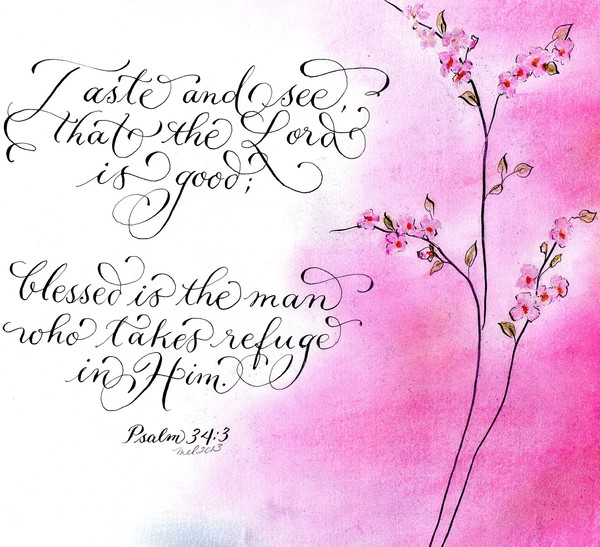 Taste and see,
that the Lord
is good;
blessed is the man
who takes refuge
in Him.
Psalm 34:3
mel 2013